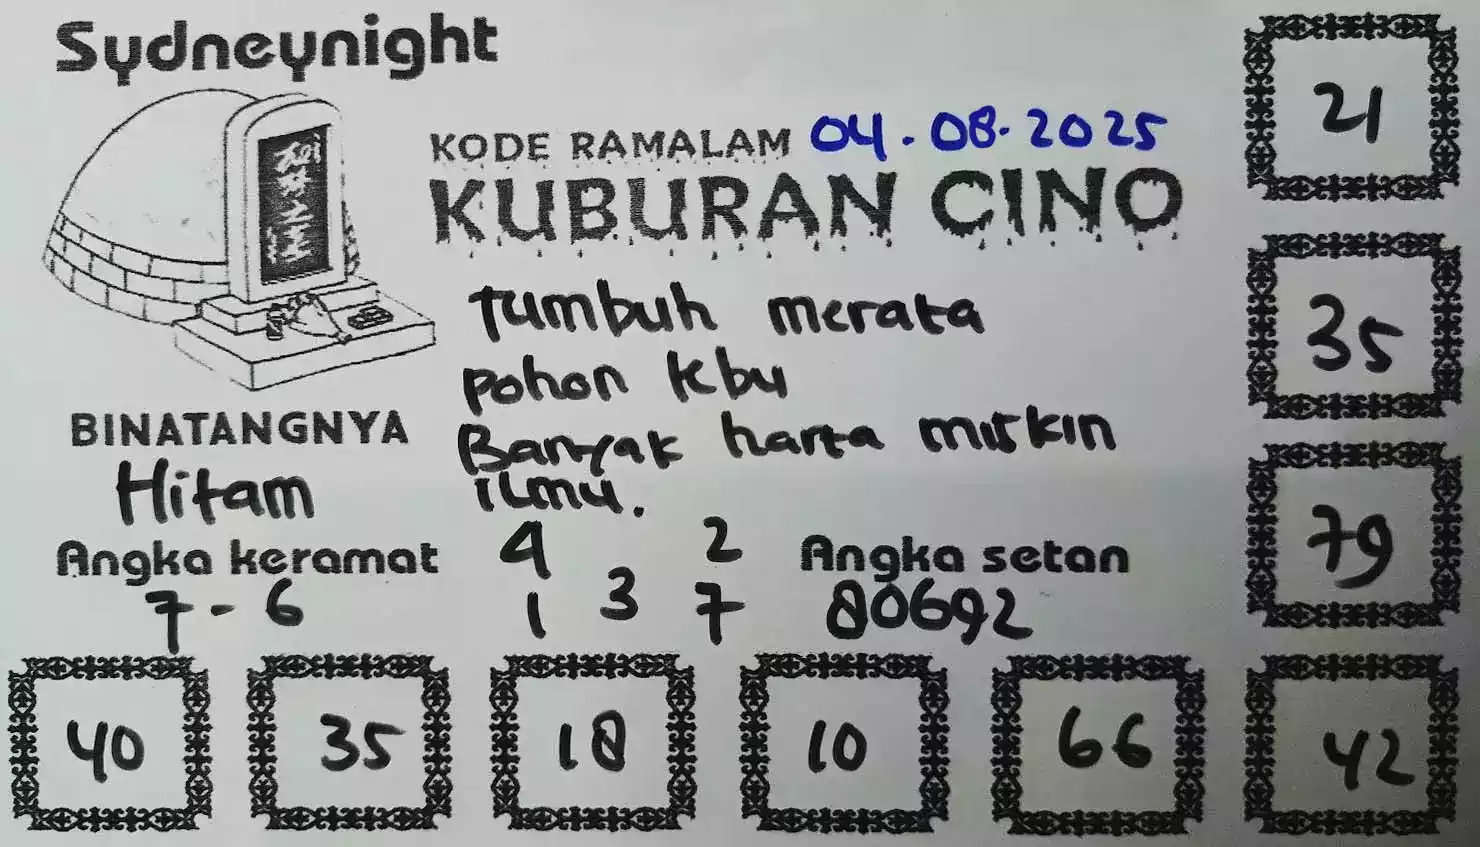 Sydneynight
KODE RAMALAM 04.08.2025
KUBURAN CINO
tumbuh merata
pohon tebu
Banyak harta miskin
ilmu.
BINATANGNYA
Hitam
Angka keramat
7-6
4 2
1 3 7
Angka setan
80692
21
35
79
40 35 18 10 66 42